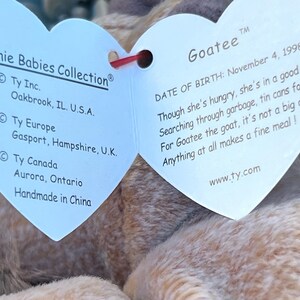 nie Babies Collection®
© Ty Inc.
Oakbrook, IL. U.S.A.
© Ty Europe
Gasport, Hampshire, U.K.
© Ty Canada
Aurora, Ontario
Handmade in China
Goatee™
DATE OF BIRTH: November 4, 199
Though she's hungry, she's in a good
Searching through garbage, tin cans fo
For Goatee the goat, it's not a big
Anything at all makes a fine meal !
www.ty.com